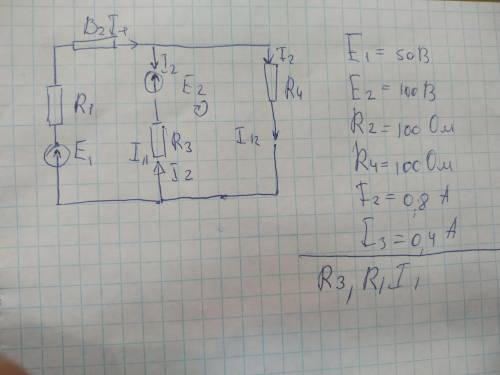 B2 I1
I2
I2
E2
2
R4
R1
R3
I11
I12
E1
I2
E1 = 50В
E2 = 100В
R2 = 100 Ом
R4 = 100 Ом
I2 = 0,8 А
I3 = 0,4 А
R3, R1 I1